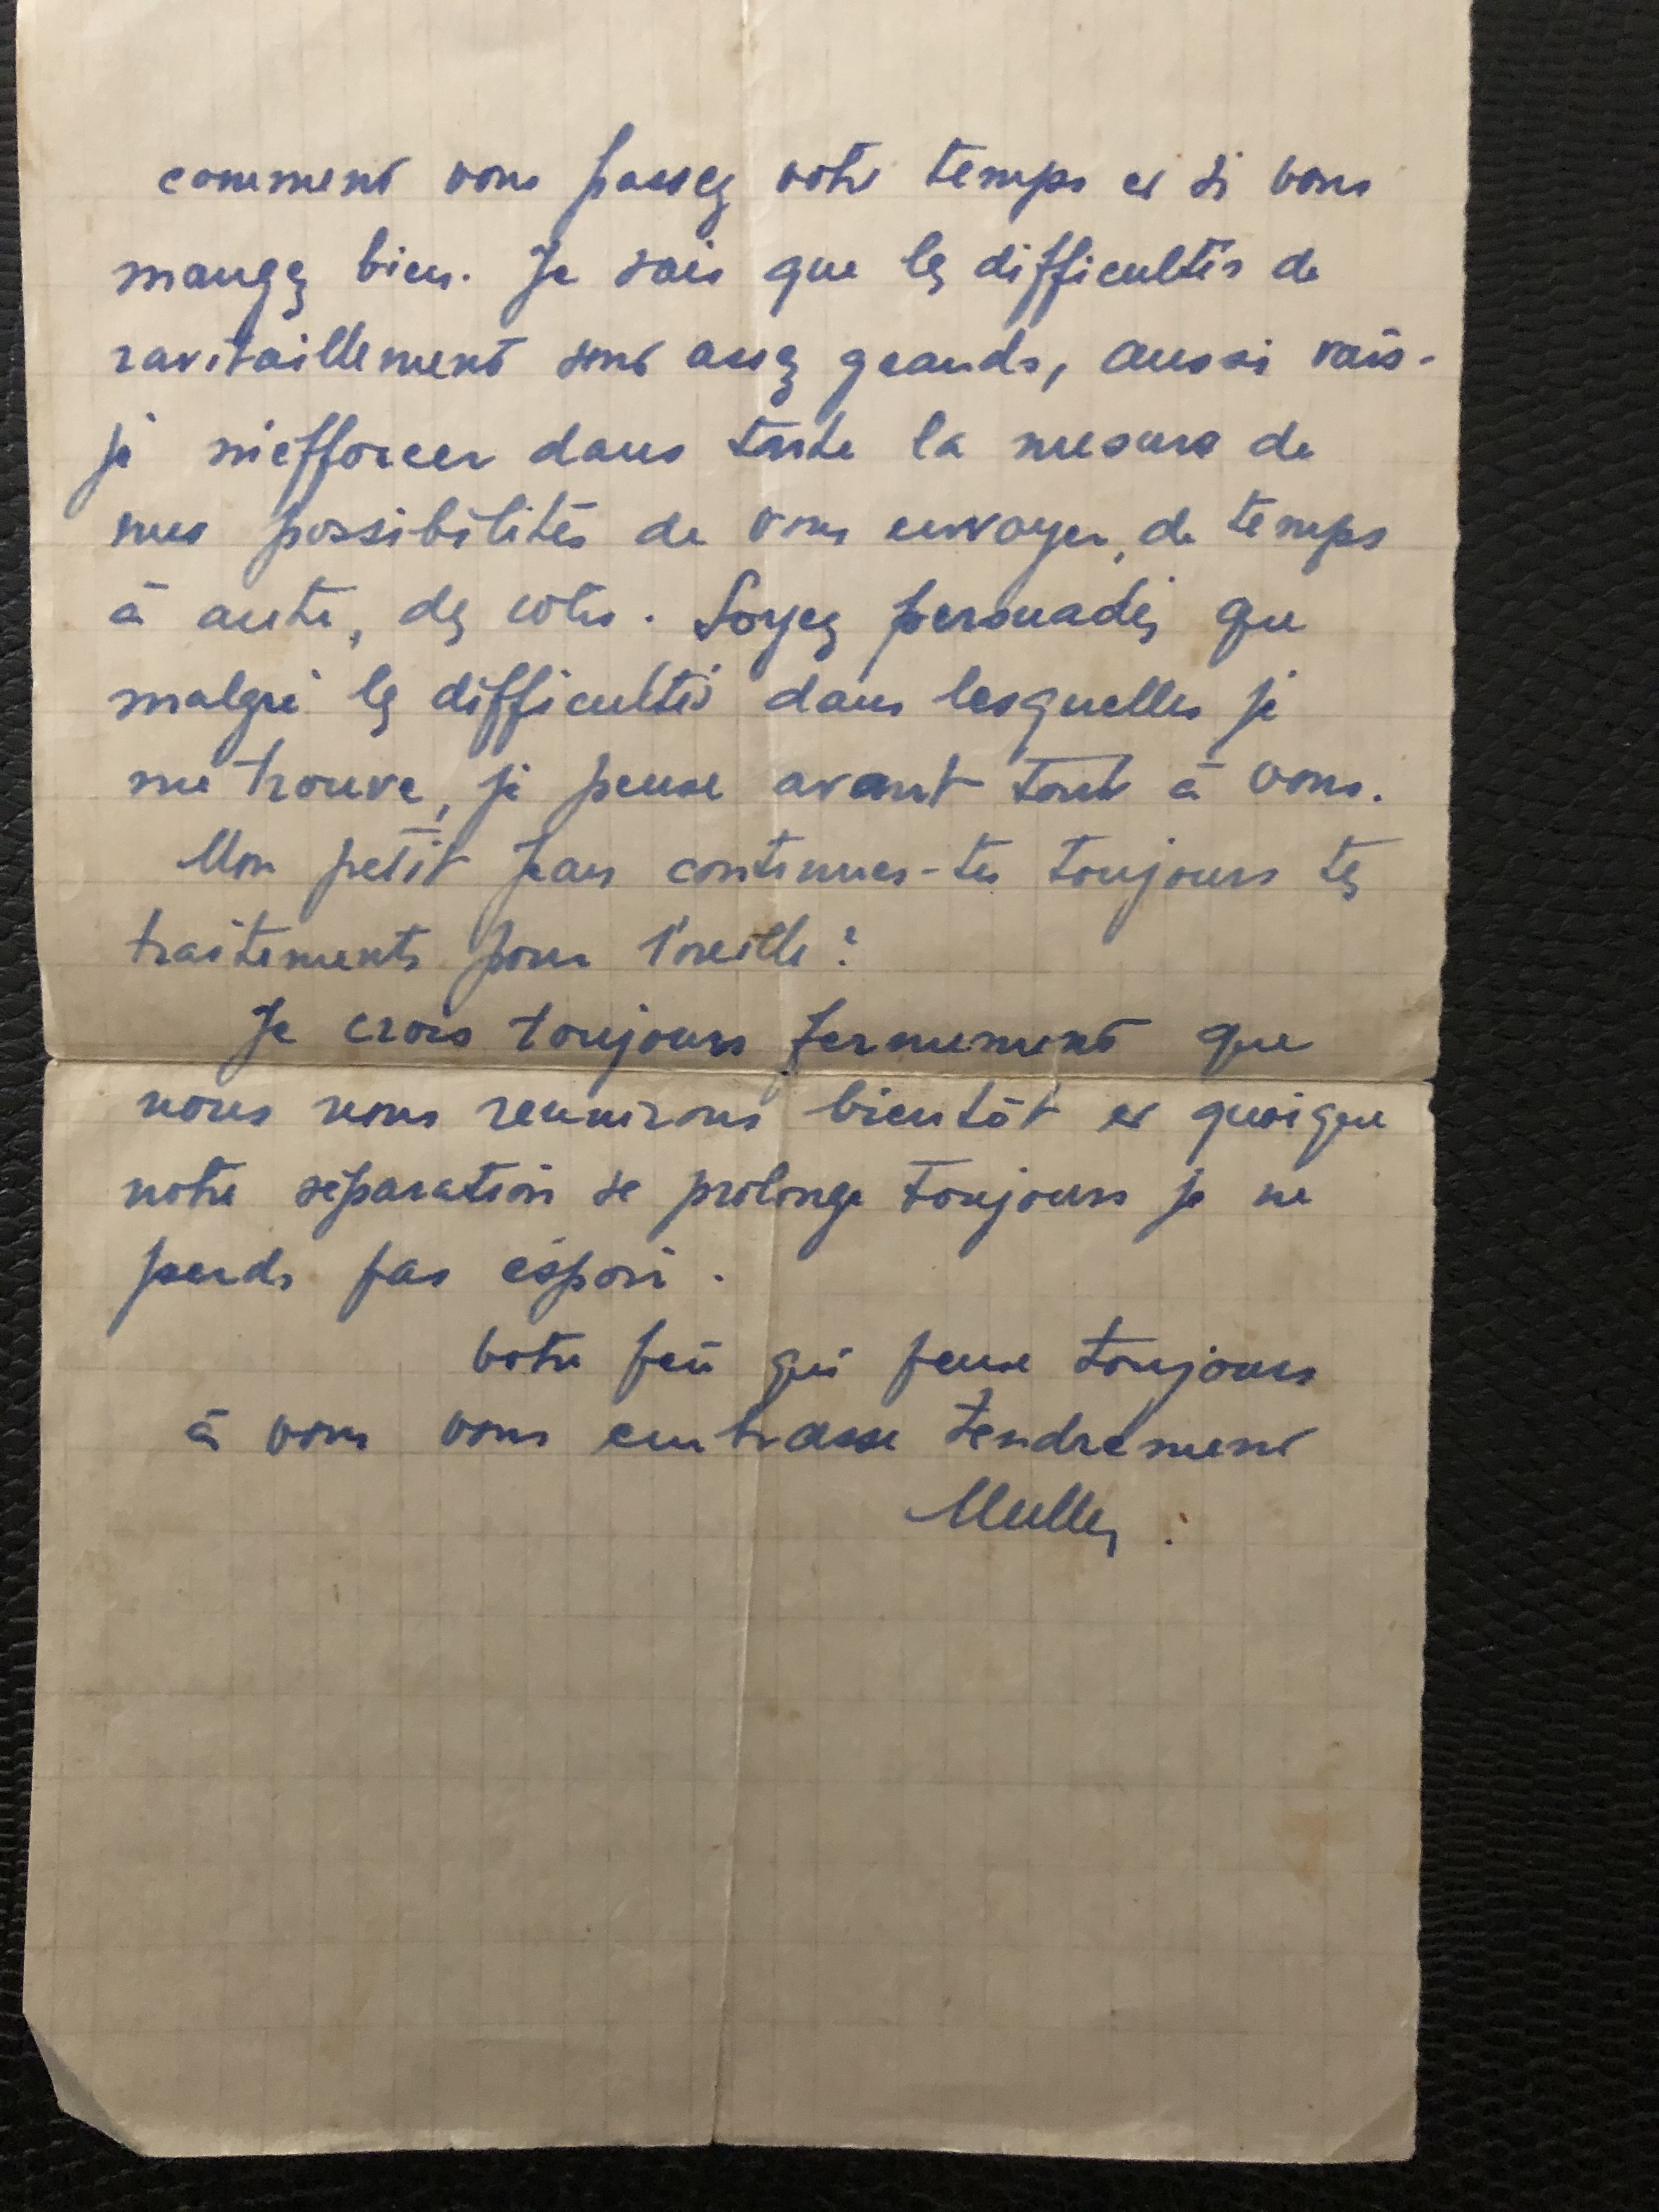 comment vous passez votre temps et si vous
mangez bien. Je sais que les difficultés de
ravitaillement sont assez grands, aussi vais-
je m'efforcer dans toute la mesure de
mes possibilités de vous envoyer, de temps
à autre, des colis. Soyez persuadés que
malgré les difficultés dans lesquelles je
me trouve, je pense avant tout à vous.
Mon petit Jean continues-tu toujours tes
traitements pour l'oreille?
Je crois toujours fermement que
nous nous reunirons bientôt et quoique
notre séparation se prolonge toujours je ne
perds pas éspoir.
votre qui pense toujours
à vous vous embrasse tendrement